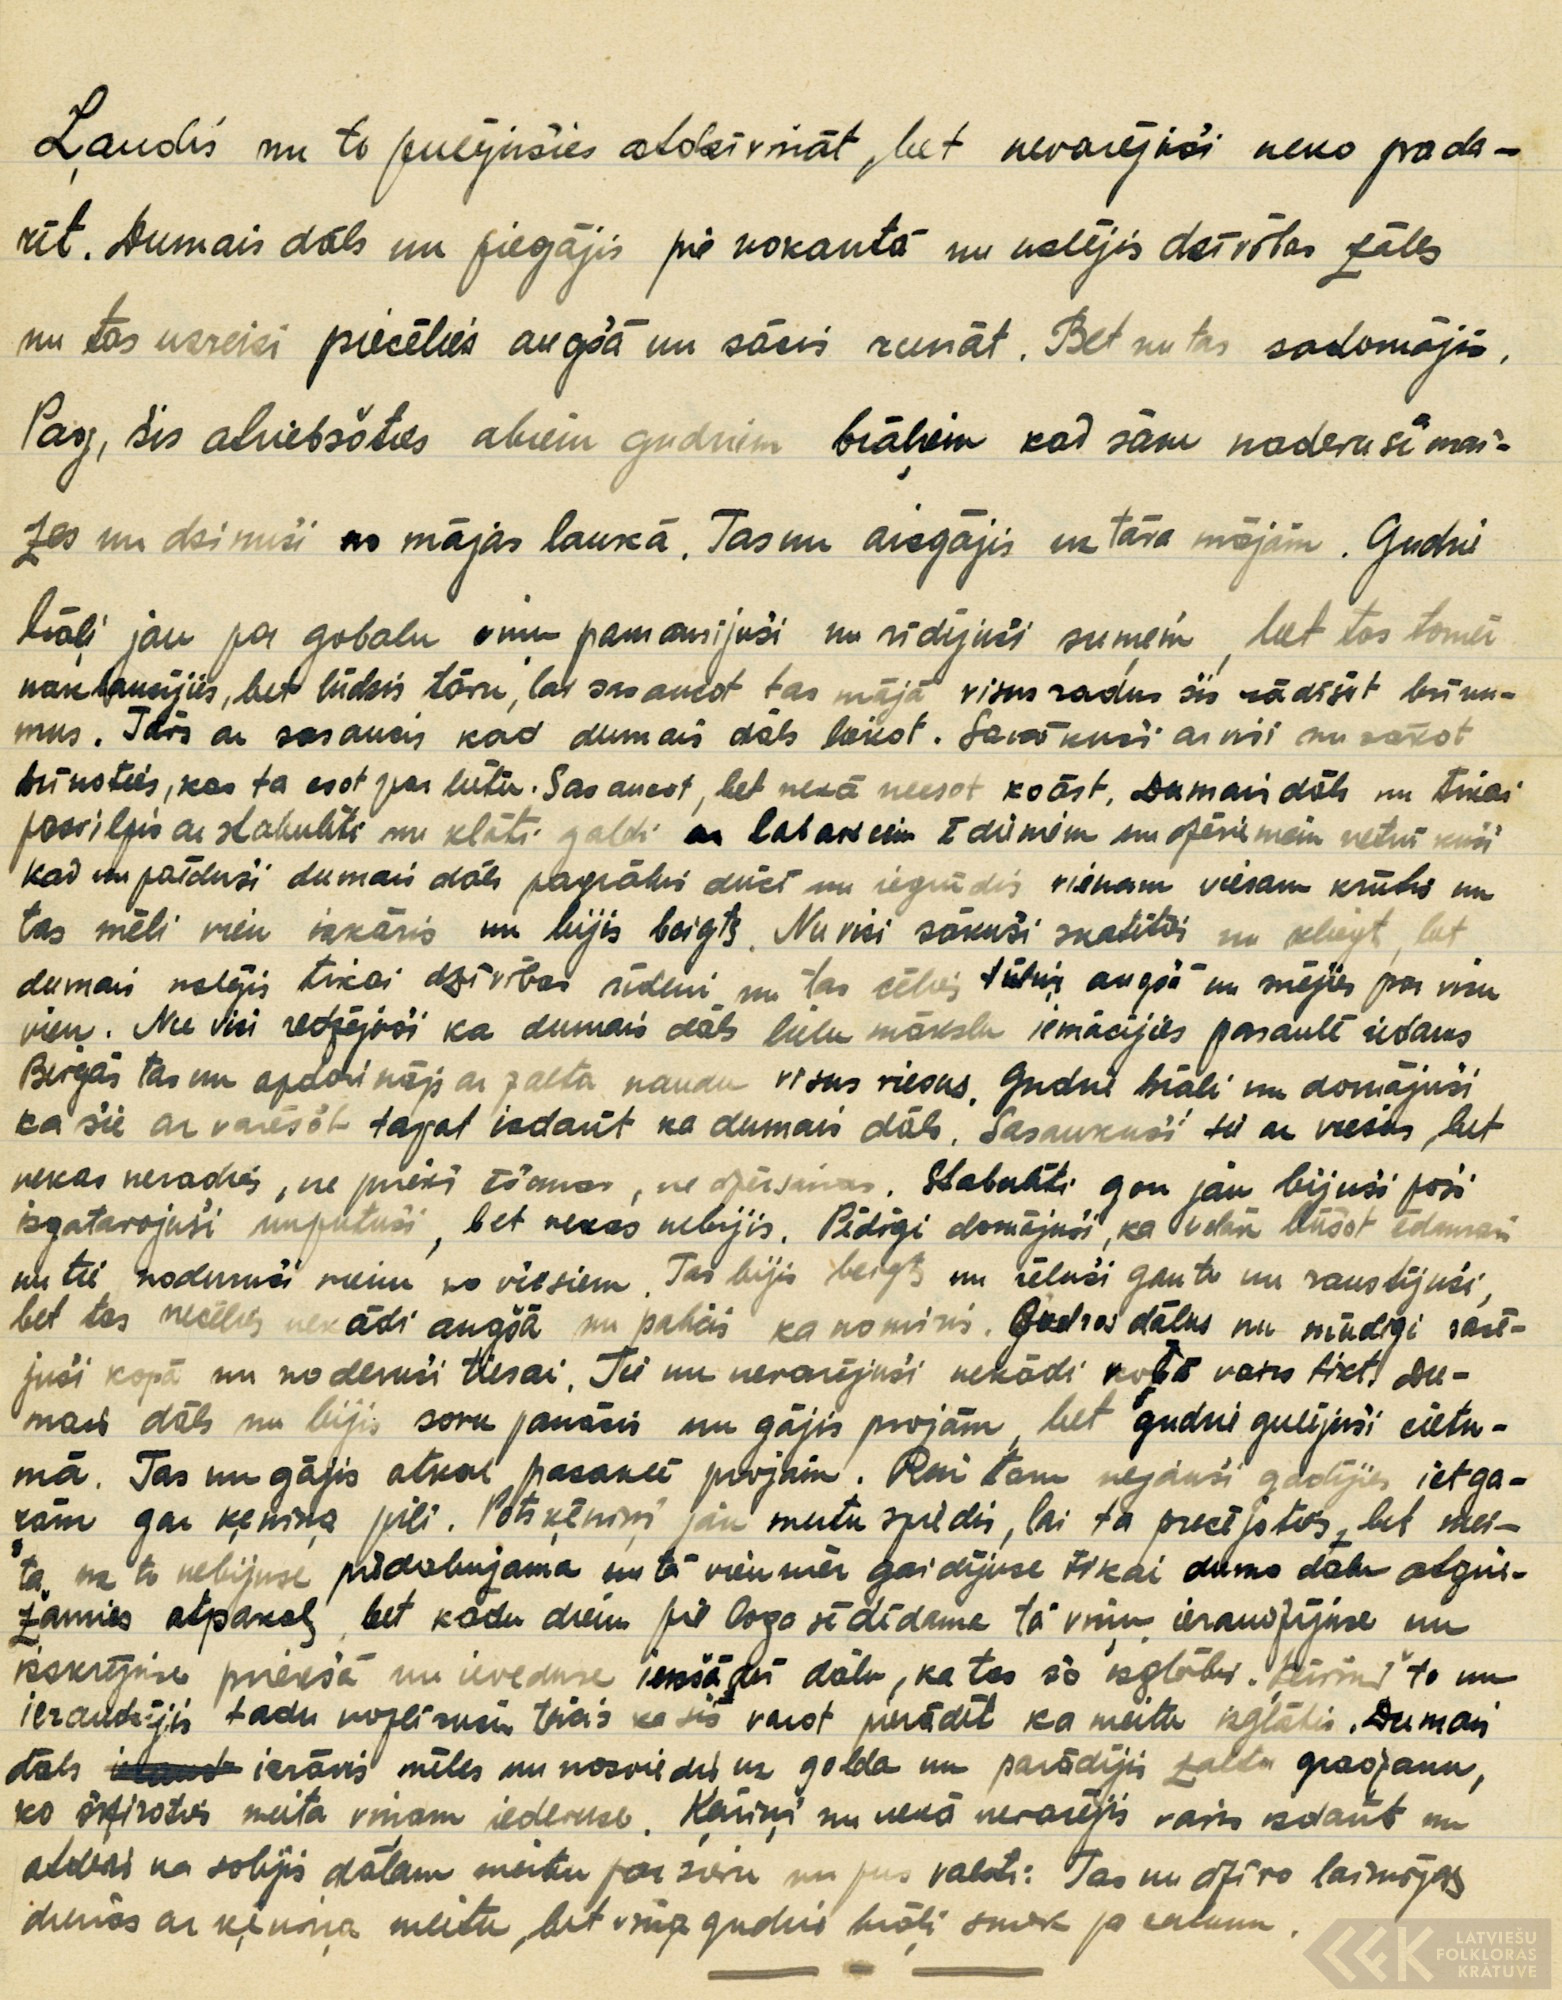 Ļaudis nu to pulējušies atdzīvināt, bet nevarējuši neko pada-
rīt. Dumais dāls nu piegājis pie nokautā nu uslējis dzīvības zāles
nu tas usreizi piecēlies augšā un sācis runāt. Bet nu tas sadomājis.
Pag, šis atriebšoties abiem gudriem brāļiem kad šam nadevuši mai-
zes un dzinuši no mājas laukā. Tas nu aizgājis uz tāva mājām. Gudrie
brāļi jau pa gobalu viņu pamanījuši nu rīdījuši suņiem, bet tas tomēr
bet lūdzis tāvu, lai sasaucot tas mājā visus radus šis rādīšot brīnu-
mus. Tāvs ar sasaucis kad dumais dāls liekot. Sanākuši ar visi nu sākot
brīnoties, kas ta esot par lietu. Sasaucot, bet nekā neesot ko āst. Dumais dāls nu tikai
pasvilpis ar stabulīti nu klāti galdi ar labakiem ēdieniem un dzērieniem netrūkuši
kad nu paēduši dumais dāls pagrābis dūci nu iegrūdis vienam viesam krūtīs un
tas mēli vien izkāris un bijis beigts. Nu visi sākuši skatīties nu kliegt, bet
dumais uslējis tikai dzīvības ūdeni nu tas cēlies tūliņ augšā un smējies par visu
vien. Nu visi redzējuši ka dumais dāls lielu mākslu iemācījies pasaulē iedams
Beigās tas nu apdāvinājs ar zalta naudu visus viesus. Gudrie brāli nu domājuši
ka šie ar varēšot tagat izdarīt ka dumais dāls. Sasaukuši tie ar viesus, bet
nekas neradies, ne priekš ēšanas, ne dzeršanas. Stabulīti gon jau bijuši poši
izgatavojuši un pūtuši, bet nekas nebijis. Pēdīgi domājuši, ka vēlāk būšot ēdamais
nu tie noduruši vienu no viesiem. Tas bijis beigts nu cēluši gan to nu raustījuši,
bet tas necēlies nekādi augšā nu palicis ka nomiris. Gudros dālus nu mudīgi sasē-
juši kopā nu nodevuši tiesai. Tie nu nevarējuši nekādi vairs tikt. Du-
mais dāls nu bijis savu panācis nu gājis projām, bet gudrie gulējuši cietu-
mā. Tas nu gājis atkal pasaulē projām. Reiz tam nejauši gadījies iet ga-
rām gar ķeniņa pili. Pats ķēniņš jau meitu spiedis, lai ta precējoties, bet mei-
ta uz to nebijuse pierdabujama nu tā vienmēr gaidījuse tikai dumo dālu atgrie-
žamies atpakaļ, bet kādu dienu pie loga sēdēdama tā viņu ieraudzījuse un
izskrējuse priekšā nu ieveduse iekšā dālu, ka tas šo izglābis. Ķēniņš to nu
ieraudzījis tadu noplīsušu teicis ka šis varot pierādīt ka meitu izglābis. Dumais
dāls izrāvis mēles nu nosviedis uz galda un parādījis zalta gradzanu,
ko šķirotis meita viņam iedevuse. Ķēniņš nu nekā nevarējis vairs izdarīt un
atdevis ka solījis dālam meitu par sievu nu pus valsti: Tas nu dzīvo laimīgas
dienas ar ķēniņa meitu, bet viņa gudrie brāļi smok pa cietumu.
LATVIEŠU
FOLKLORAS
KRĀTUVE